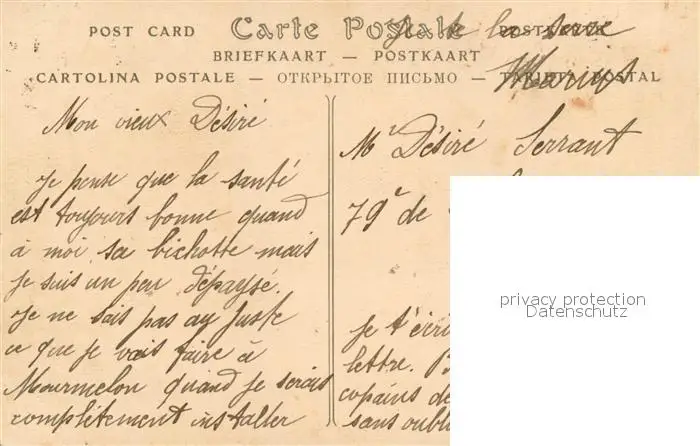 Je te la serre
Marius
POST CARD Carte Postale POSTKARTE
BRIEFKAART — POSTKAART
CARTOLINA POSTALE — ОТКРЫТОЕ ПИСЬМО — TARJETA POSTAL
Mon vieux Désiré
Je pense que la santé
est toujours bonne quand
à moi sa bichotte mais
je suis un peu dépaysé.
Je ne sais pas au juste
ce que je vais faire à
Mourmelon quand je serais
complétement installer
Mr Désiré Serrant
79e de
Je t'écri
lettre.
copains de
sans oubli
privacy protection
Datenschutz